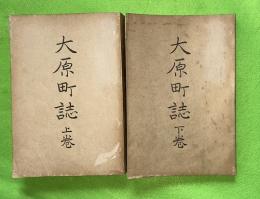 大原町誌 上巻
大原町誌 下巻